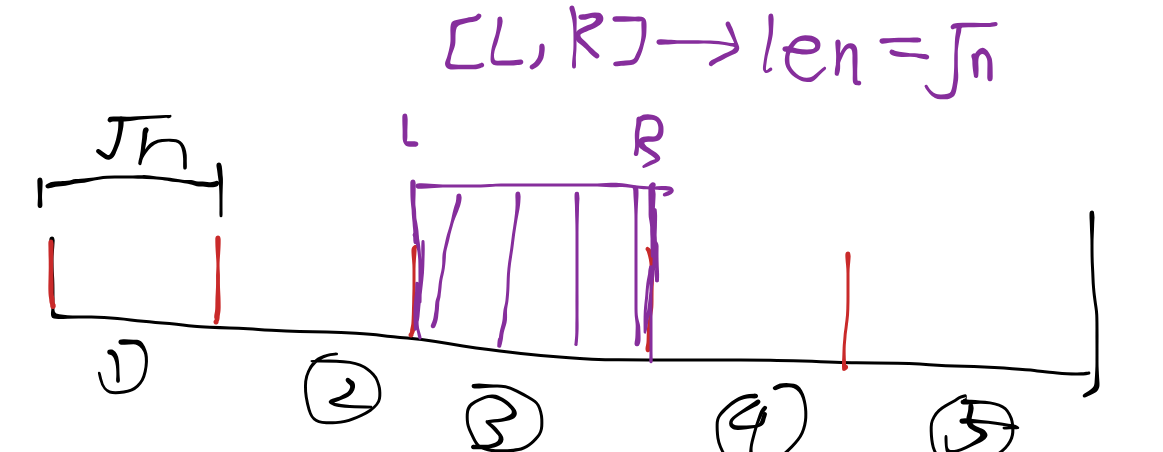 [L, R] → len = √n
√n
L
R
① ② ③ ④ ⑤